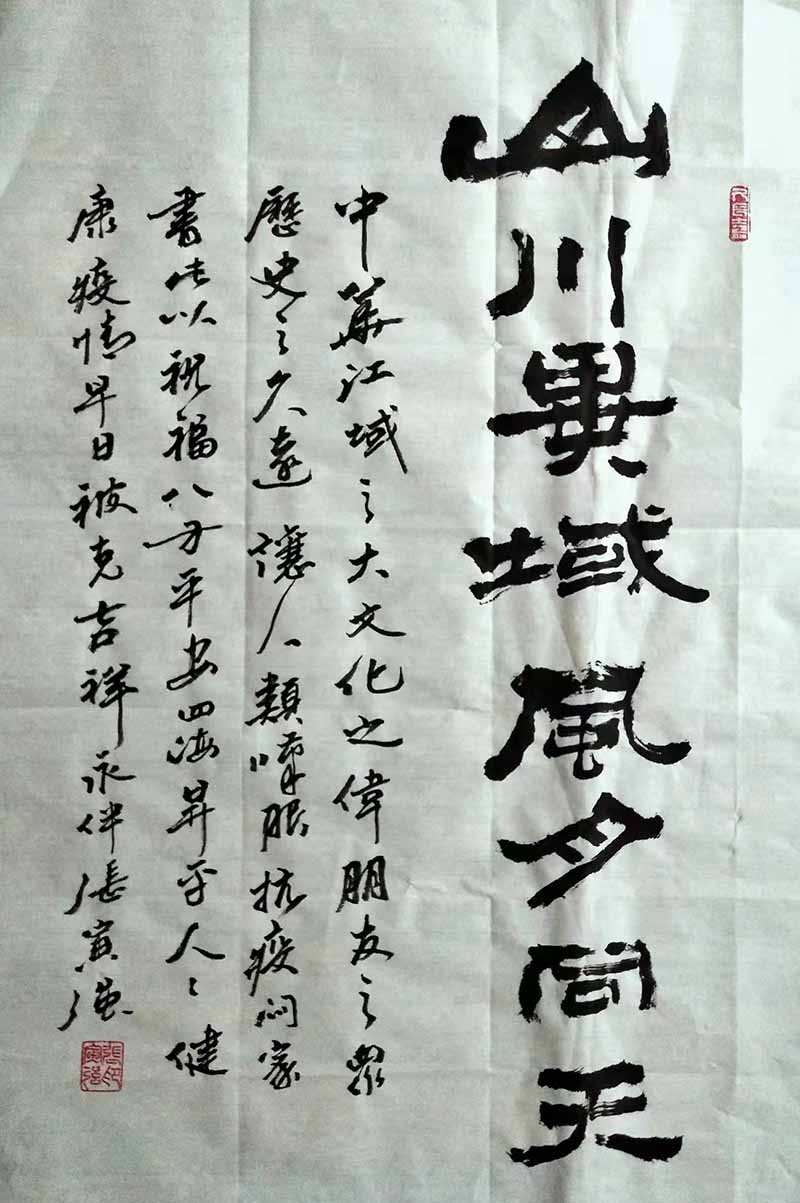 山川異域風月同天
中華江域之大文化之偉朋友之眾
歷史之久遠讓人類嘆服抗疫悶家
書此以祝福八方平安四海昇平人々健
康疫情早日被克吉祥永伴張寅強